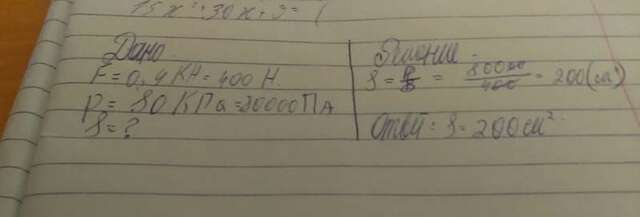 15x² + 30x + 9 = (
Дано
F = 0,4 КН = 400 Н.
P = 80 КПа = 80000 Па
S = ?
Решение
S = P/F = 80000/400 = 200 (см²)
Ответ: S = 200 см².